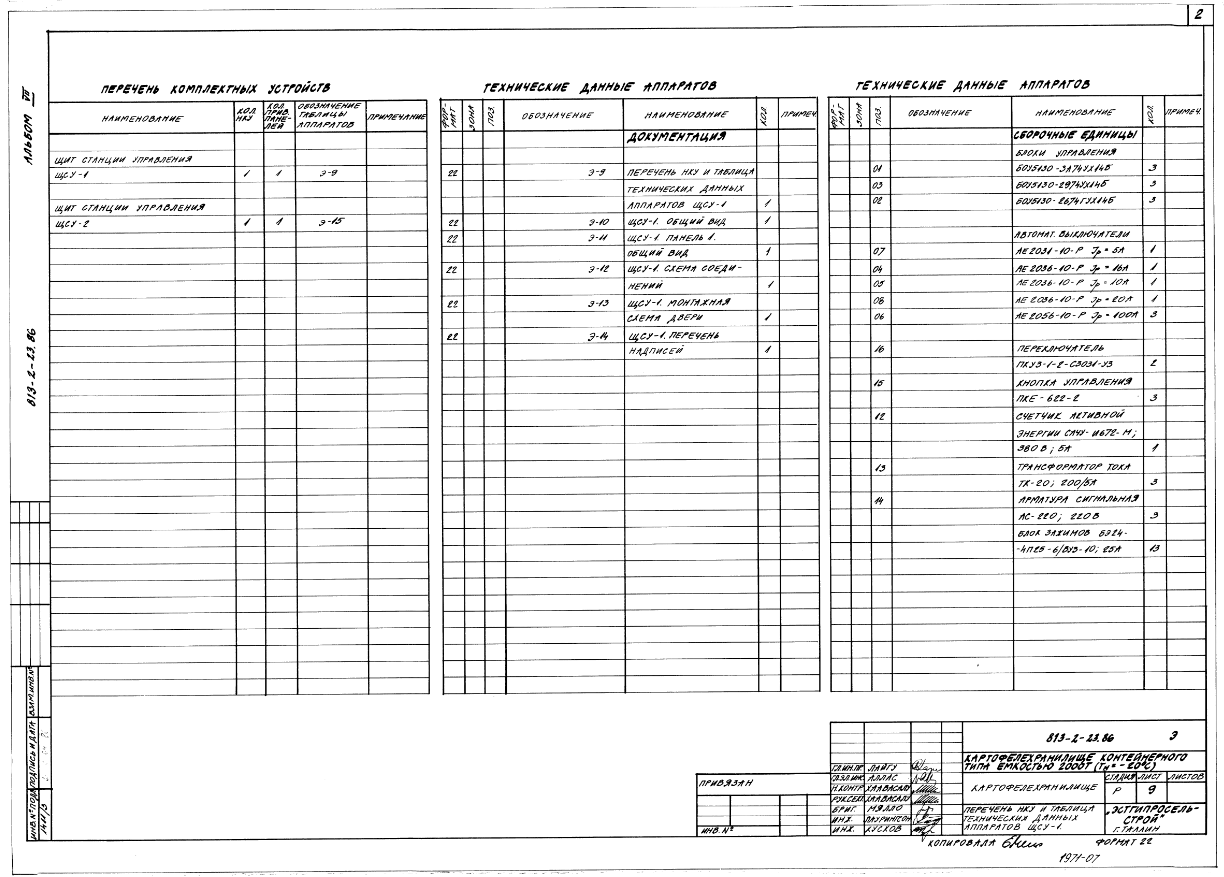 2
АЛЬБОМ VII
813-2-23.86
ПЕРЕЧЕНЬ КОМПЛЕКТНЫХ УСТРОЙСТВ
НАИМЕНОВАНИЕ КОЛ. НКУ КОЛ. ПРИВ. ПАНЕЛЕЙ ОБОЗНАЧЕНИЕ ТАБЛИЦЫ АППАРАТОВ ПРИМЕЧАНИЕ
ЩИТ СТАНЦИИ УПРАВЛЕНИЯ
ЩСУ-1 1 1 Э-9
ЩИТ СТАНЦИИ УПРАВЛЕНИЯ
ЩСУ-2 1 1 Э-15
ТЕХНИЧЕСКИЕ ДАННЫЕ АППАРАТОВ
ФОРМАТ ЗОНА ПОЗ. ОБОЗНАЧЕНИЕ НАИМЕНОВАНИЕ КОЛ. ПРИМЕЧ.
ДОКУМЕНТАЦИЯ
22 Э-9 ПЕРЕЧЕНЬ НКУ И ТАБЛИЦА
ТЕХНИЧЕСКИХ ДАННЫХ
АППАРАТОВ ЩСУ-1 1
22 Э-10 ЩСУ-1. ОБЩИЙ ВИД 1
22 Э-11 ЩСУ-1 ПАНЕЛЬ 1.
ОБЩИЙ ВИД 1
22 Э-12 ЩСУ-1. СХЕМА СОЕДИ-
НЕНИЙ 1
22 Э-13 ЩСУ-1. МОНТАЖНАЯ
СХЕМА ДВЕРИ 1
22 Э-14 ЩСУ-1. ПЕРЕЧЕНЬ
НАДПИСЕЙ 1
ТЕХНИЧЕСКИЕ ДАННЫЕ АППАРАТОВ
ФОРМАТ ЗОНА ПОЗ. ОБОЗНАЧЕНИЕ НАИМЕНОВАНИЕ КОЛ. ПРИМЕЧ.
СБОРОЧНЫЕ ЕДИНИЦЫ
БЛОКИ УПРАВЛЕНИЯ
01 БОУ5130-3А74УХЛ4Б 3
03 БОУ5130-2974УХЛ4Б 3
02 БОУ5130-2674ГУХЛ4Б 3
АВТОМАТ. ВЫКЛЮЧАТЕЛИ
07 АЕ 2031-10-Р Jр = 5А 1
04 АЕ 2036-10-Р Jр = 16А 1
05 АЕ 2036-10-Р Jр = 10А 1
08 АЕ 2036-10-Р Jр = 20А 1
06 АЕ 2056-10-Р Jр = 100А 3
16 ПЕРЕКЛЮЧАТЕЛЬ
ПКУ3-1-2-С3031-У3 2
15 КНОПКА УПРАВЛЕНИЯ
ПКЕ-622-2 3
12 СЧЕТЧИК АКТИВНОЙ
ЭНЕРГИИ САЧУ-И672-М;
380 В; 5А 1
13 ТРАНСФОРМАТОР ТОКА
ТК-20; 200/5А 3
14 АРМАТУРА СИГНАЛЬНАЯ
АС-220; 220 В 3
БЛОК ЗАЖИМОВ БЗ24-
-4П25-6/ВУЗ-10; 25А 13
813-2-23.86 Э
КАРТОФЕЛЕХРАНИЛИЩЕ КОНТЕЙНЕРНОГО
ТИПА ЕМКОСТЬЮ 2000Т (Тн = -20°С)
ГЛ.ИН.ПР ЛАЙГУ
ГЛ.ЭЛ.ИНЖ АЛЛАС
Н.КОНТР ХААВАСАЛУ
РУК.СЕКТ ХААВАСАЛУ
БРИГ. МЯЛЛО
ИНЖ. ЛАУРИНГСОН
ИНЖ. КУСКОВ
КАРТОФЕЛЕХРАНИЛИЩЕ
СТАДИЯ ЛИСТ ЛИСТОВ
Р 9
ПЕРЕЧЕНЬ НКУ И ТАБЛИЦА
ТЕХНИЧЕСКИХ ДАННЫХ
АППАРАТОВ ЩСУ-1.
"ЭСТГИПРОСЕЛЬ-
СТРОЙ"
Г. ТАЛЛИН
ПРИВЯЗАН
ИНВ. №
ИНВ.№ ПОДЛ ПОДПИСЬ И ДАТА ВЗАМ.ИНВ.№
КОПИРОВАЛА ФОРМАТ 22
1971-07